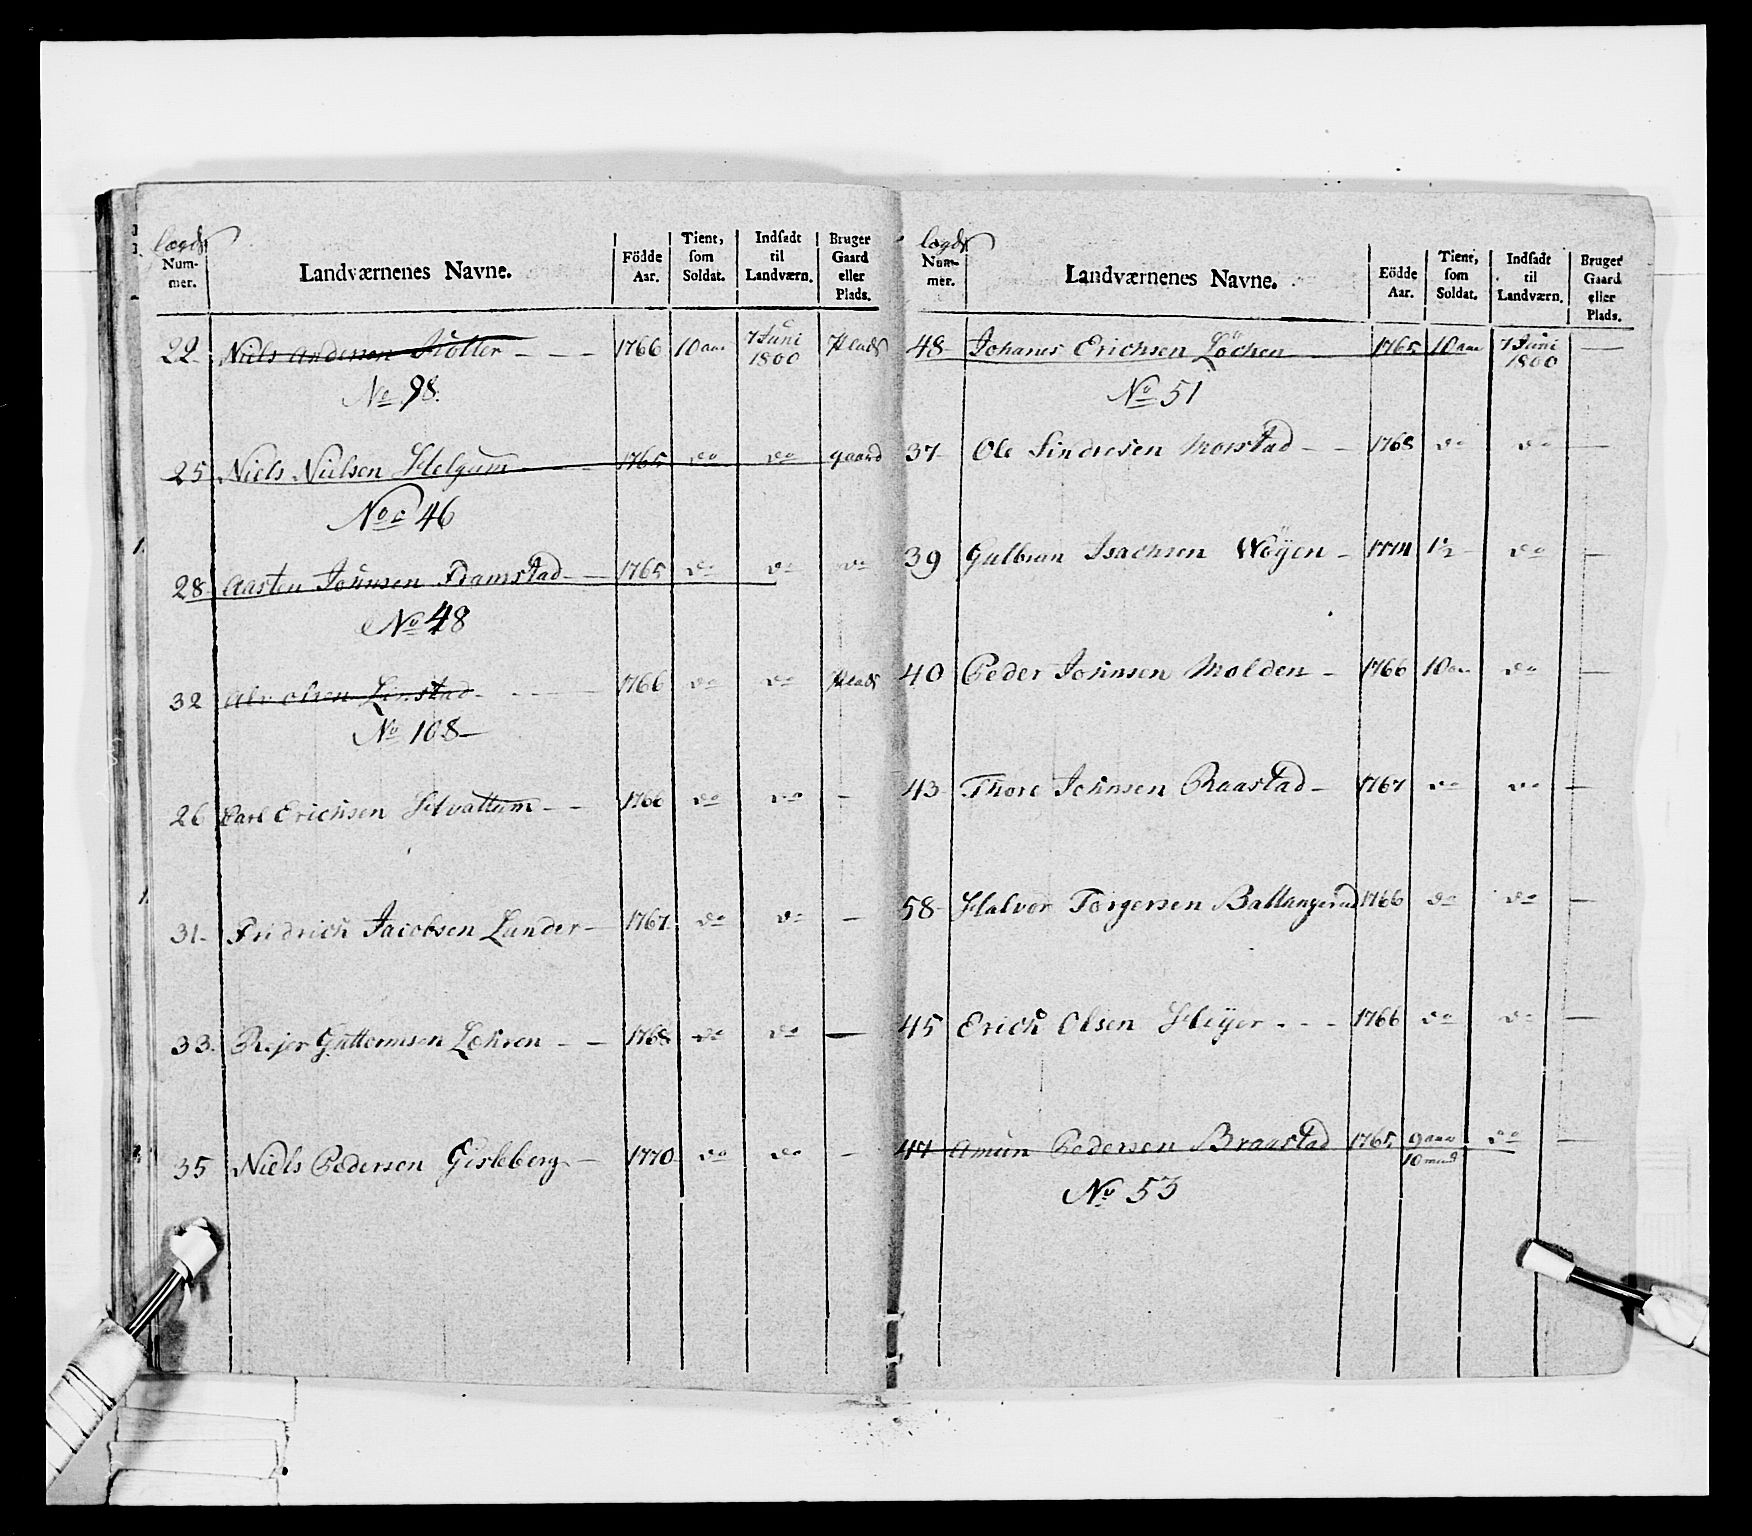 Lægds Num-mer. Landværnenes Navne. Födde Aar. Tient, som Soldat. Indsadt til Landværn. Bruger Gaard eller Plads.
22 Niels Andersen - - - 1766 10 aar 7 Juni 1800 Plads
No 98.
25 Niels Nielsen Helgum 1765 do do gaard
No 46
28 Aasten Johnsen Framstad - - 1765 do do do
No 48
32 Alv Olsen Linstad - - - - 1766 do do Plads
No 108 -
26 Carl Erichsen Hvattum - - 1766 do do -
31 - Fridrich Jacobsen Lunder - 1767 do do -
33. Guttormsen - - 1768 do do -
35 Niels Pedersen Gisleberg - 1770 do do -
Lægds Num-mer. Landværnenes Navne. Födde Aar. Tient, som Soldat. Indsadt til Landværn. Bruger Gaard eller Plads.
48 Johanes Erichsen Löchen 1765 10 aar 7 Juni 1800 -
No 51
37 - Ole Sindresen Morstad - - 1768 do do -
39 Gulbran Isachsen Wöyen - 1771 1½ - do -
40 Peder Johnsen Molden - 1766 10 aar do -
43 Thore Johnsen Raastad - 1767 do do -
58 - Halvor Torgersen Ballangerud 1766 do do -
45 Erich Olsen Heyer - - - 1766 do do -
47 Amun Pedersen Braastad 1765 9 aar 10 mned do -
No 53